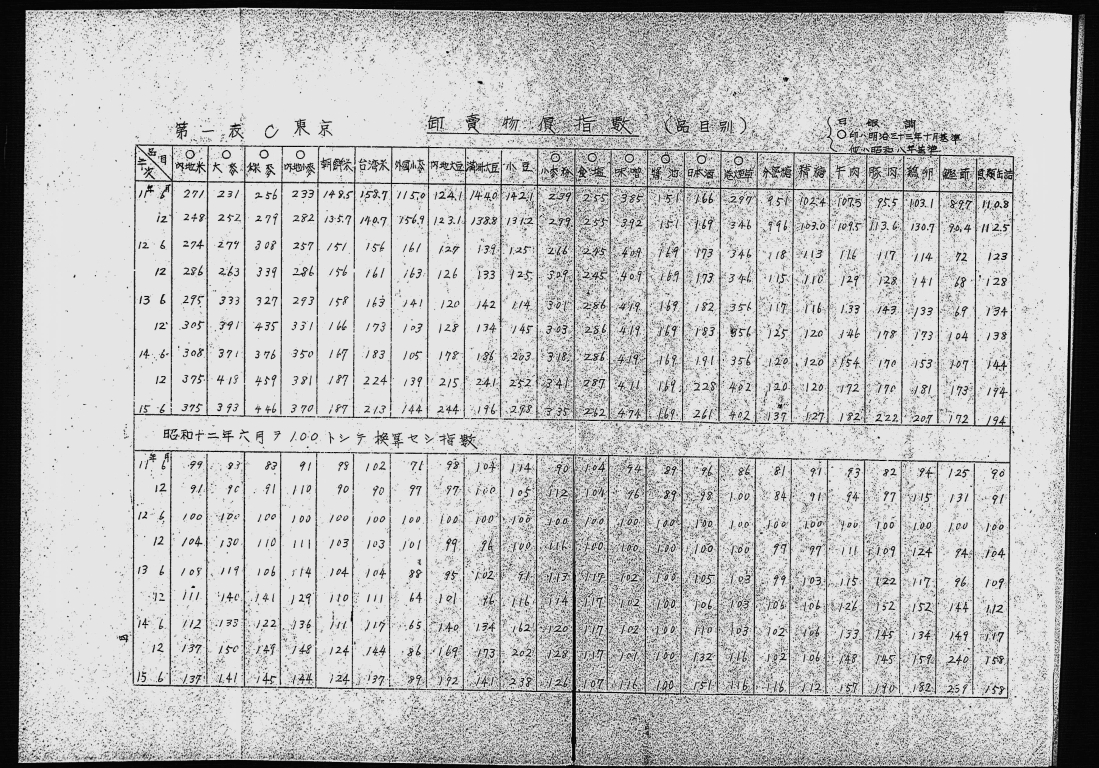 第一表 C 東京 卸賣物價指數 (品目別)
日銀調
○印ハ明治三十三年十月基準
他ハ昭和八年基準
品目 年次 ○内地米 ○大麦 ○裸麦 ○内地小麦 朝鮮米 台湾米 外國小麦 内地大豆 満洲大豆 小豆 ○小麦粉 ○食塩 ○味噌 ○醤油 ○日本酒 牛肉 豚肉 鶏卵 鰹節
11年 6月 271 231 256 233 148.5 158.7 115.0 124.1 144.0 142.1 239 255 385 151 166 297 95.1 102.4 107.5 95.5 103.1 89.7 110.8
12 248 252 279 282 135.7 140.7 156.9 123.1 138.8 131.2 299 255 392 151 169 346 99.6 103.0 109.5 113.6 130.7 90.4 112.5
12 6 274 279 308 257 151 156 161 127 139 125 266 245 409 169 173 346 118 113 116 117 114 72 123
12 286 263 339 286 156 161 163 126 133 125 309 245 409 169 173 346 115 110 129 128 141 68 128
13 6 295 333 327 293 158 163 141 120 142 114 301 286 419 169 182 356 117 116 133 143 133 69 134
12 305 391 435 331 166 173 103 128 134 145 303 286 419 169 183 356 125 120 146 178 173 104 138
14 6 308 371 376 350 167 183 105 178 186 203 318 286 419 169 191 356 120 120 154 170 153 107 144
12 375 419 459 381 187 224 139 215 241 252 341 287 411 169 228 402 120 120 172 170 181 173 194
15 6 375 393 446 370 187 213 144 244 196 298 335 262 474 169 261 402 137 127 182 222 207 172 194
昭和十二年六月ヲ100トシテ換算セシ指数
11年 6月 99 83 83 91 98 102 71 98 104 114 90 104 94 89 96 86 81 91 93 82 94 125 90
12 91 90 91 110 90 90 97 97 100 105 112 104 96 89 98 100 84 91 94 97 115 131 91
12 6 100 100 100 100 100 100 100 100 100 100 100 100 100 100 100 100 100 100 100 100 100 100 100
12 104 130 110 111 103 103 101 99 96 100 116 100 100 100 100 100 97 97 111 109 124 94 104
13 6 108 119 106 114 104 104 88 95 102 91 113 117 102 100 105 103 99 103 115 122 117 96 109
12 111 140 141 129 110 111 64 101 96 116 114 117 102 100 106 103 106 106 126 152 152 144 112
14 6 112 133 122 136 111 117 65 140 134 162 120 117 102 100 110 103 102 106 133 145 134 149 117
12 137 150 149 148 124 144 86 169 173 202 128 117 101 100 132 116 102 106 148 145 159 240 158
15 6 137 141 145 144 124 137 89 192 141 238 126 107 116 100 151 116 116 112 157 190 182 239 158